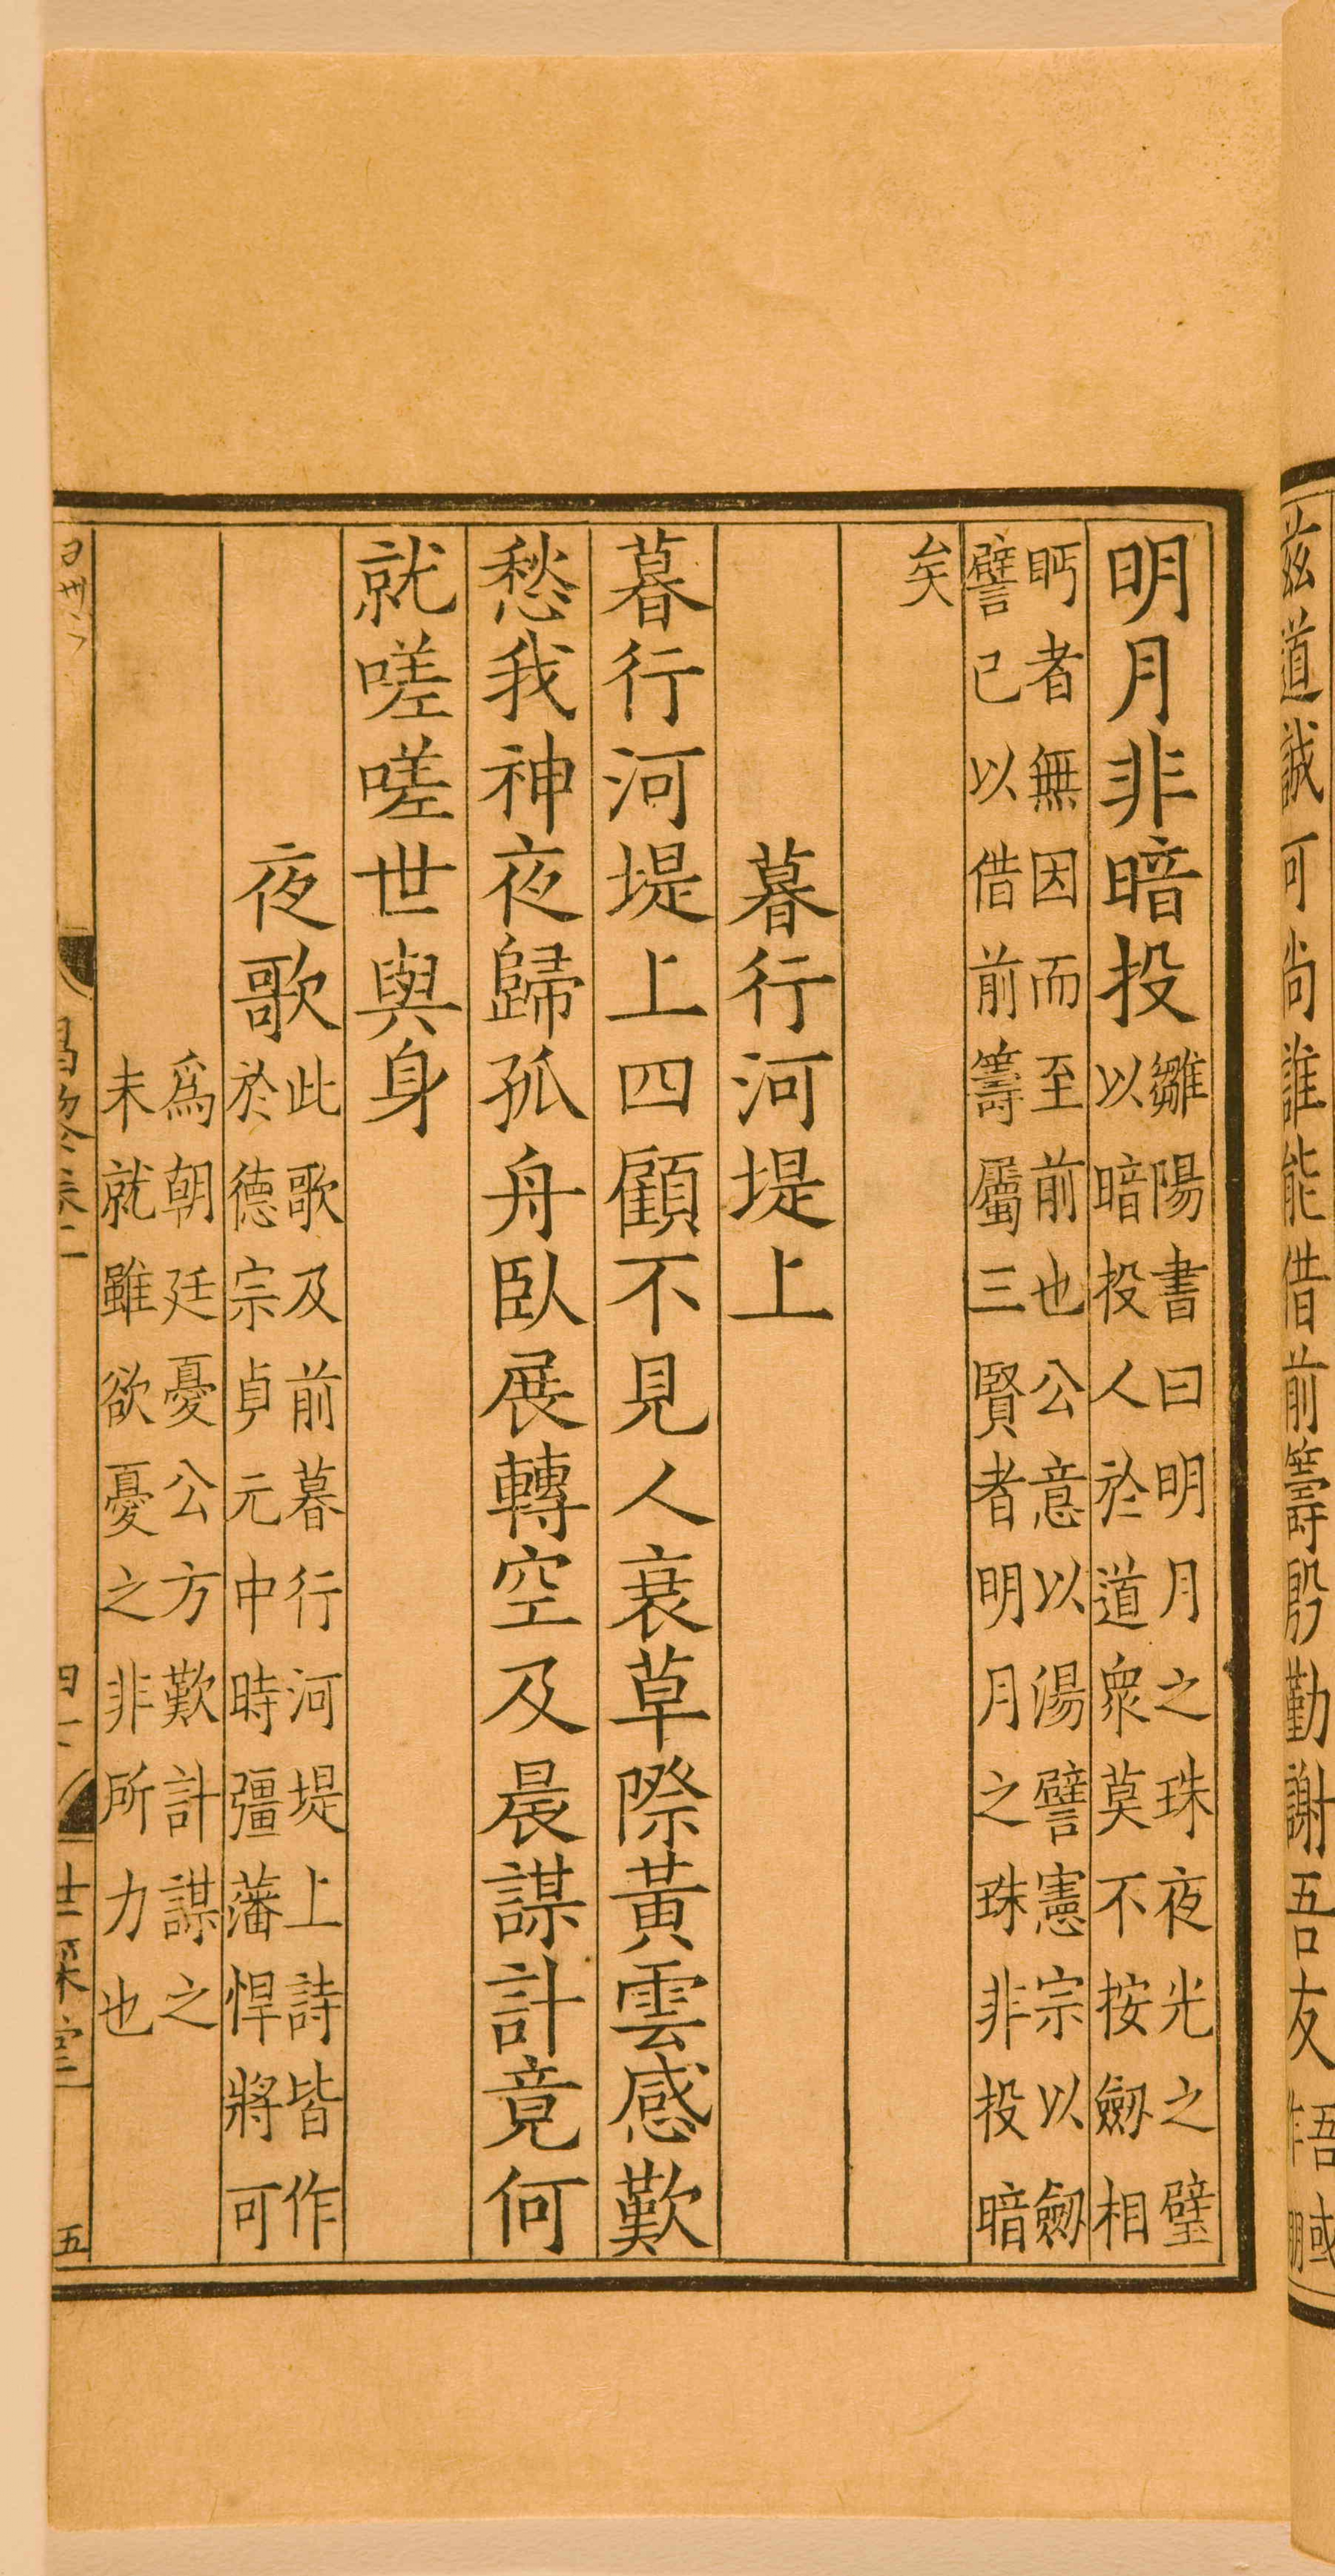 茲道誠可尚誰能借前籌殷勤謝吾友
明月非暗投雛陽書曰明月之珠夜光之璧
以暗投人於道衆莫不按劒相
眄者無因而至前也公意以湯譬憲宗以劒
譬己以借前籌屬三賢者明月之珠非投暗
矣
暮行河堤上
暮行河堤上四顧不見人衰草際黃雲感歎
愁我神夜歸孤舟臥展轉空及晨謀計竟何
就嗟嗟世與身
夜歌此歌及前暮行河堤上詩皆作
於德宗貞元中時彊藩悍將可
爲朝廷憂公方歎計謀之
未就雖欲憂之非所力也
五